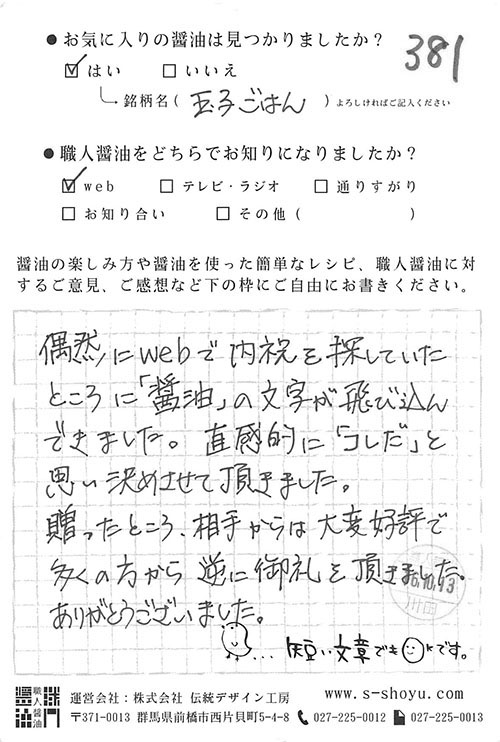 ●お気に入りの醤油は見つかりましたか？
381
☑はい □いいえ
銘柄名（ 玉子ごはん ）よろしければご記入ください
●職人醤油をどちらでお知りになりましたか？
☑web □テレビ・ラジオ □通りすがり
□お知り合い □その他（ ）
醤油の楽しみ方や醤油を使った簡単なレシピ、職人醤油に対
するご意見、ご感想など下の枠にご自由にお書きください。
偶然にwebで内祝を探していた
ところに「醤油」の文字が飛び込ん
できました。直感的に「コレだ」と
思い決めさせて頂きました。
贈ったところ、相手からは大変好評で
多くの方から逆に御礼を頂きました。
ありがとうございました。
...短い文章でもOKです。
職人醤油
運営会社：株式会社 伝統デザイン工房
www.s-shoyu.com
〒371-0013 群馬県前橋市西片貝町5-4-8
027-225-0012
027-225-0013